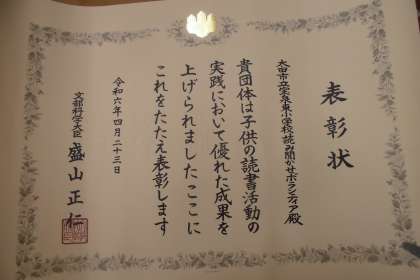 表彰状
太田市立宝泉東小学校読み聞かせボランティア殿
貴団体は子供の読書活動の
実践において優れた成果を
上げられましたここに
これをたたえ表彰します
令和六年四月二十三日
文部科学大臣 盛山正仁